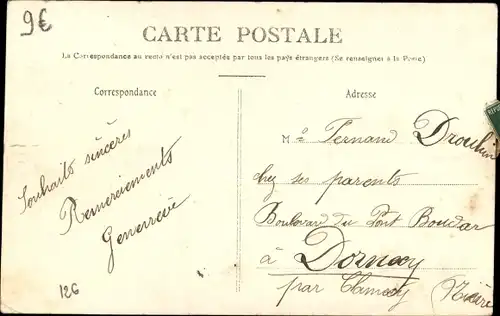 9€
CARTE POSTALE
La Correspondance au recto n'est pas acceptée par tous les pays étrangers (Se renseigner à la Poste)
Correspondance
Adresse
Souhaits sincères
Remerciements
Geneviève
126
M. Fernand Droulin
chez ses parents
Boulevard du Pont Boudar
à Dornecy
par Clamecy (Nièvre